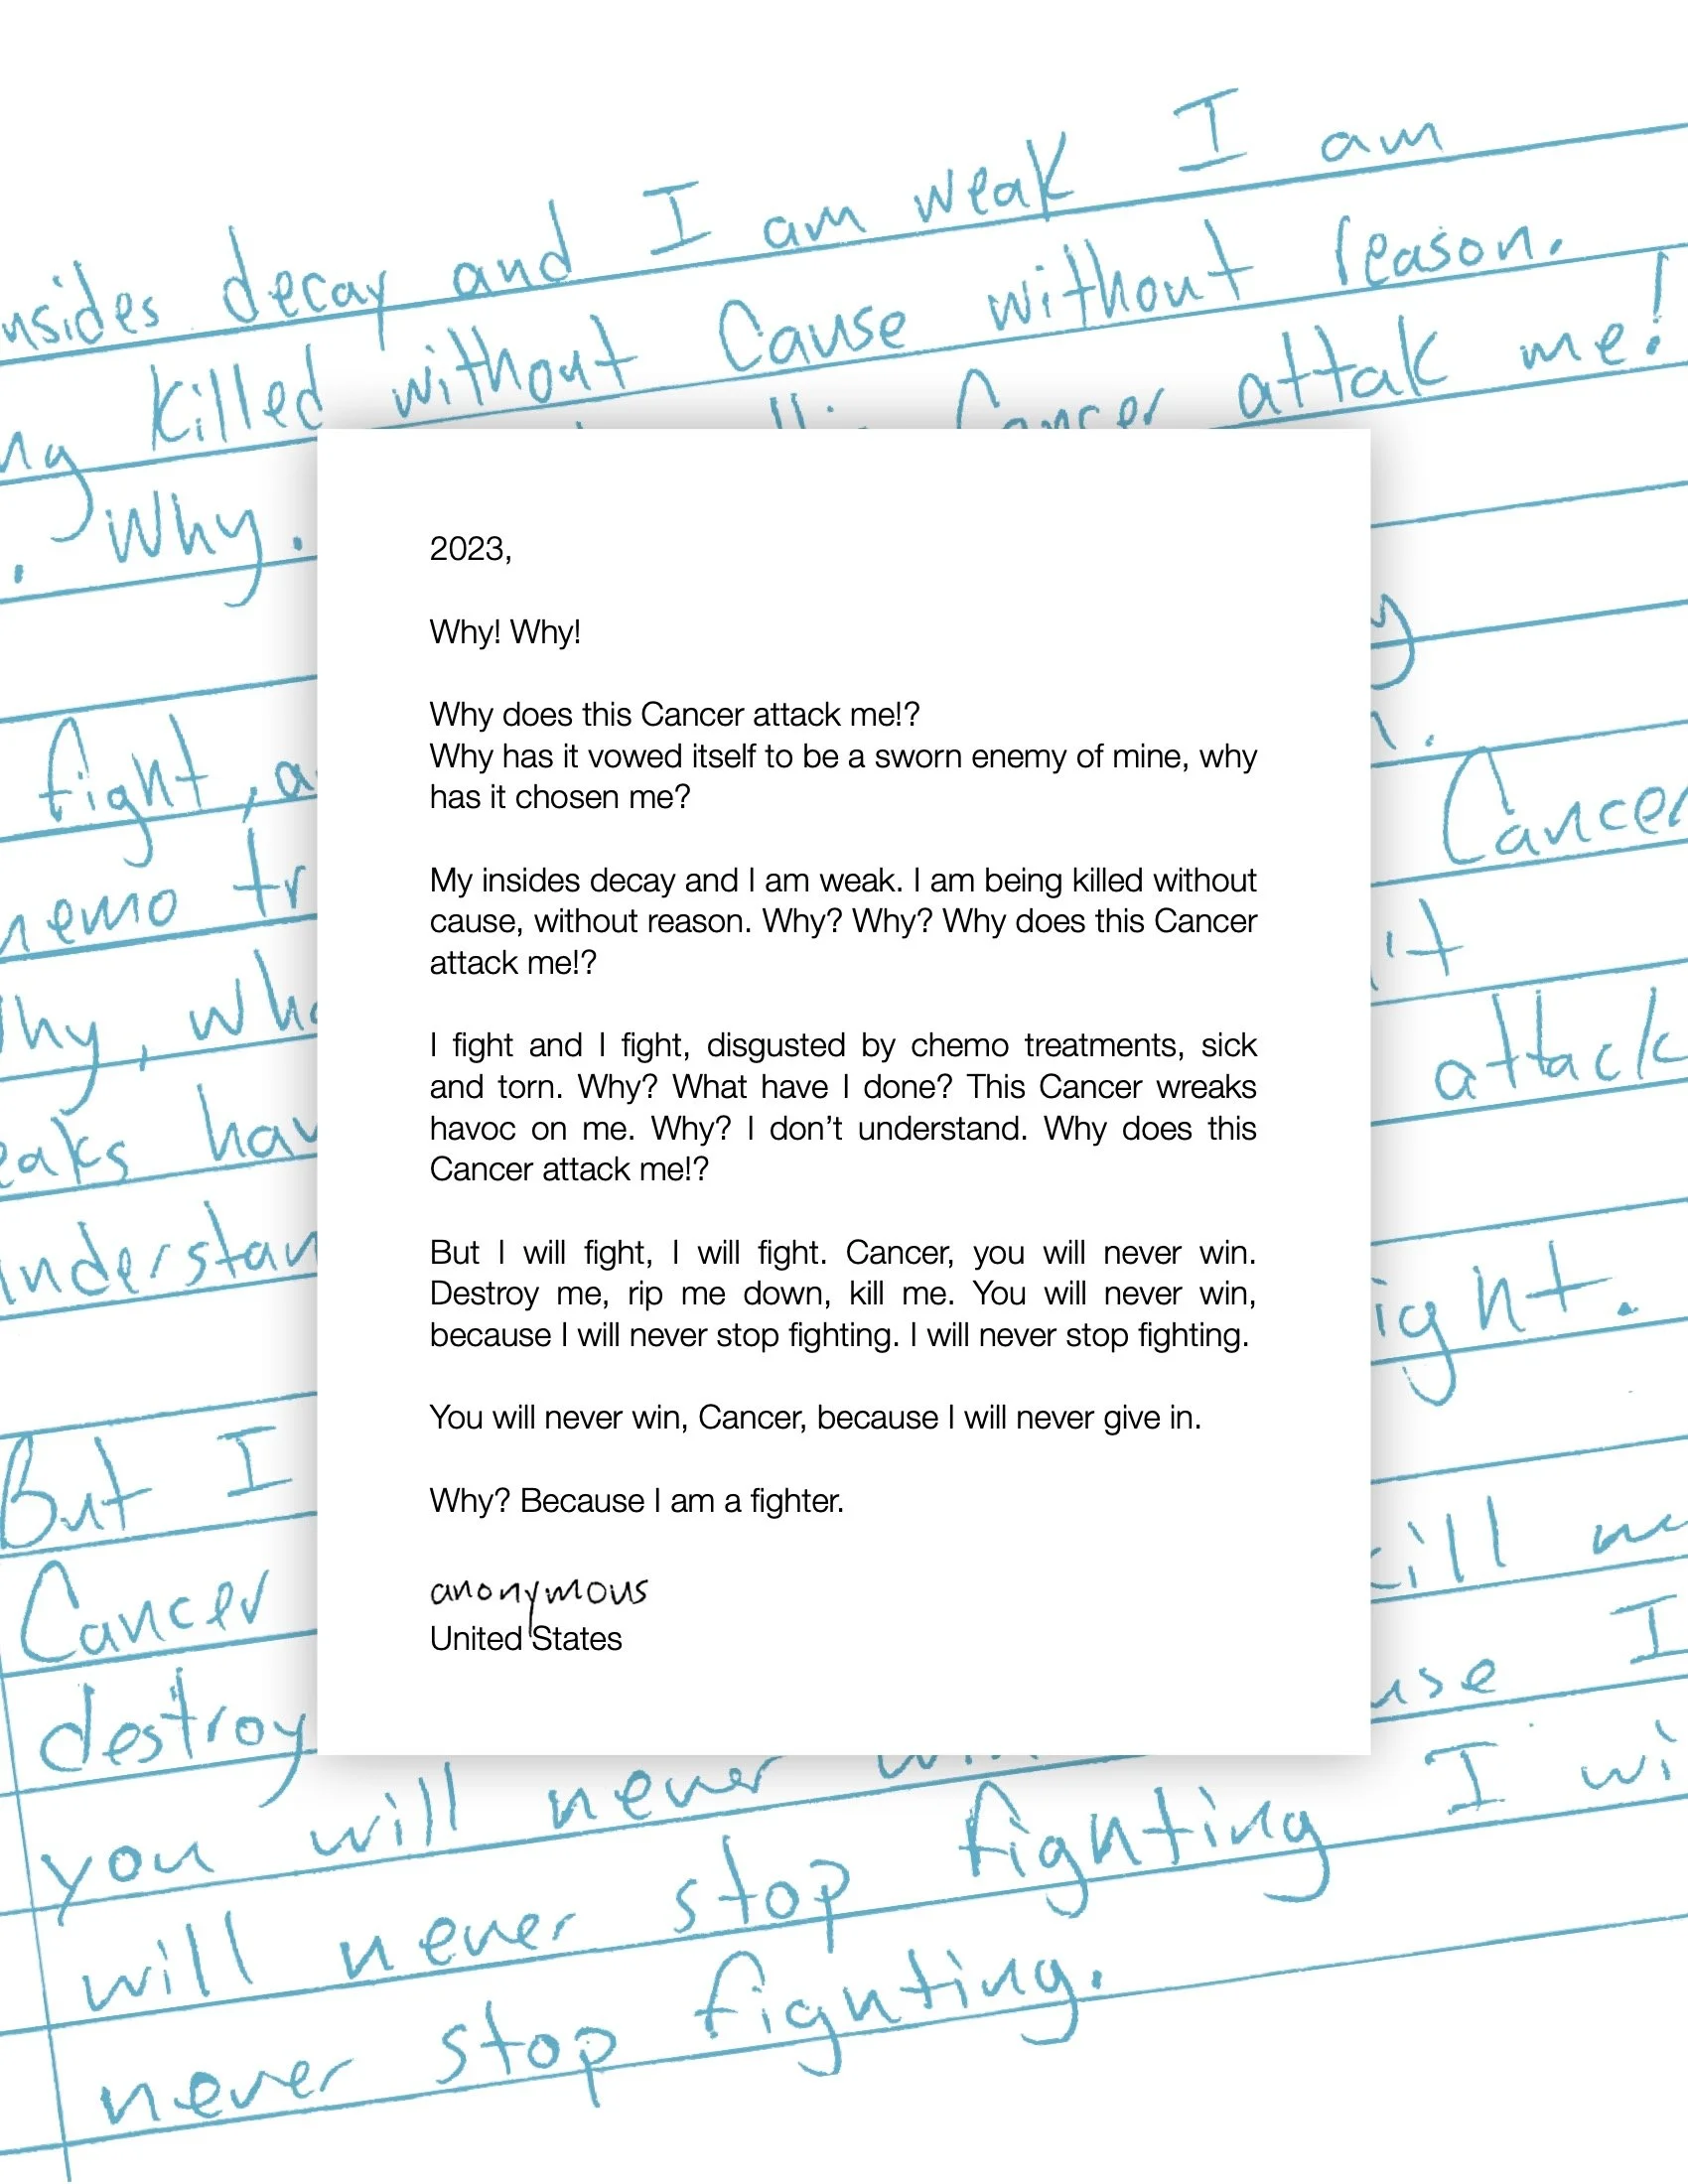 nsides decay and I am weak I am
ng killed without Cause without reason.
Cancer attak me!
. Why.
2023,
Why! Why!
Why does this Cancer attack me!?
Why has it vowed itself to be a sworn enemy of mine, why
has it chosen me?
My insides decay and I am weak. I am being killed without
cause, without reason. Why? Why? Why does this Cancer
attack me!?
I fight and I fight, disgusted by chemo treatments, sick
and torn. Why? What have I done? This Cancer wreaks
havoc on me. Why? I don’t understand. Why does this
Cancer attack me!?
But I will fight, I will fight. Cancer, you will never win.
Destroy me, rip me down, kill me. You will never win,
because I will never stop fighting. I will never stop fighting.
You will never win, Cancer, because I will never give in.
Why? Because I am a fighter.
anonymous
United States
fight, a
Cancer
hemo tr
it
hy, wha
attack
eaks hav
understan
ight.
But I
kill me
Cancer
use I
destroy
you will never win I wi
will never stop fighting
never stop fighting.